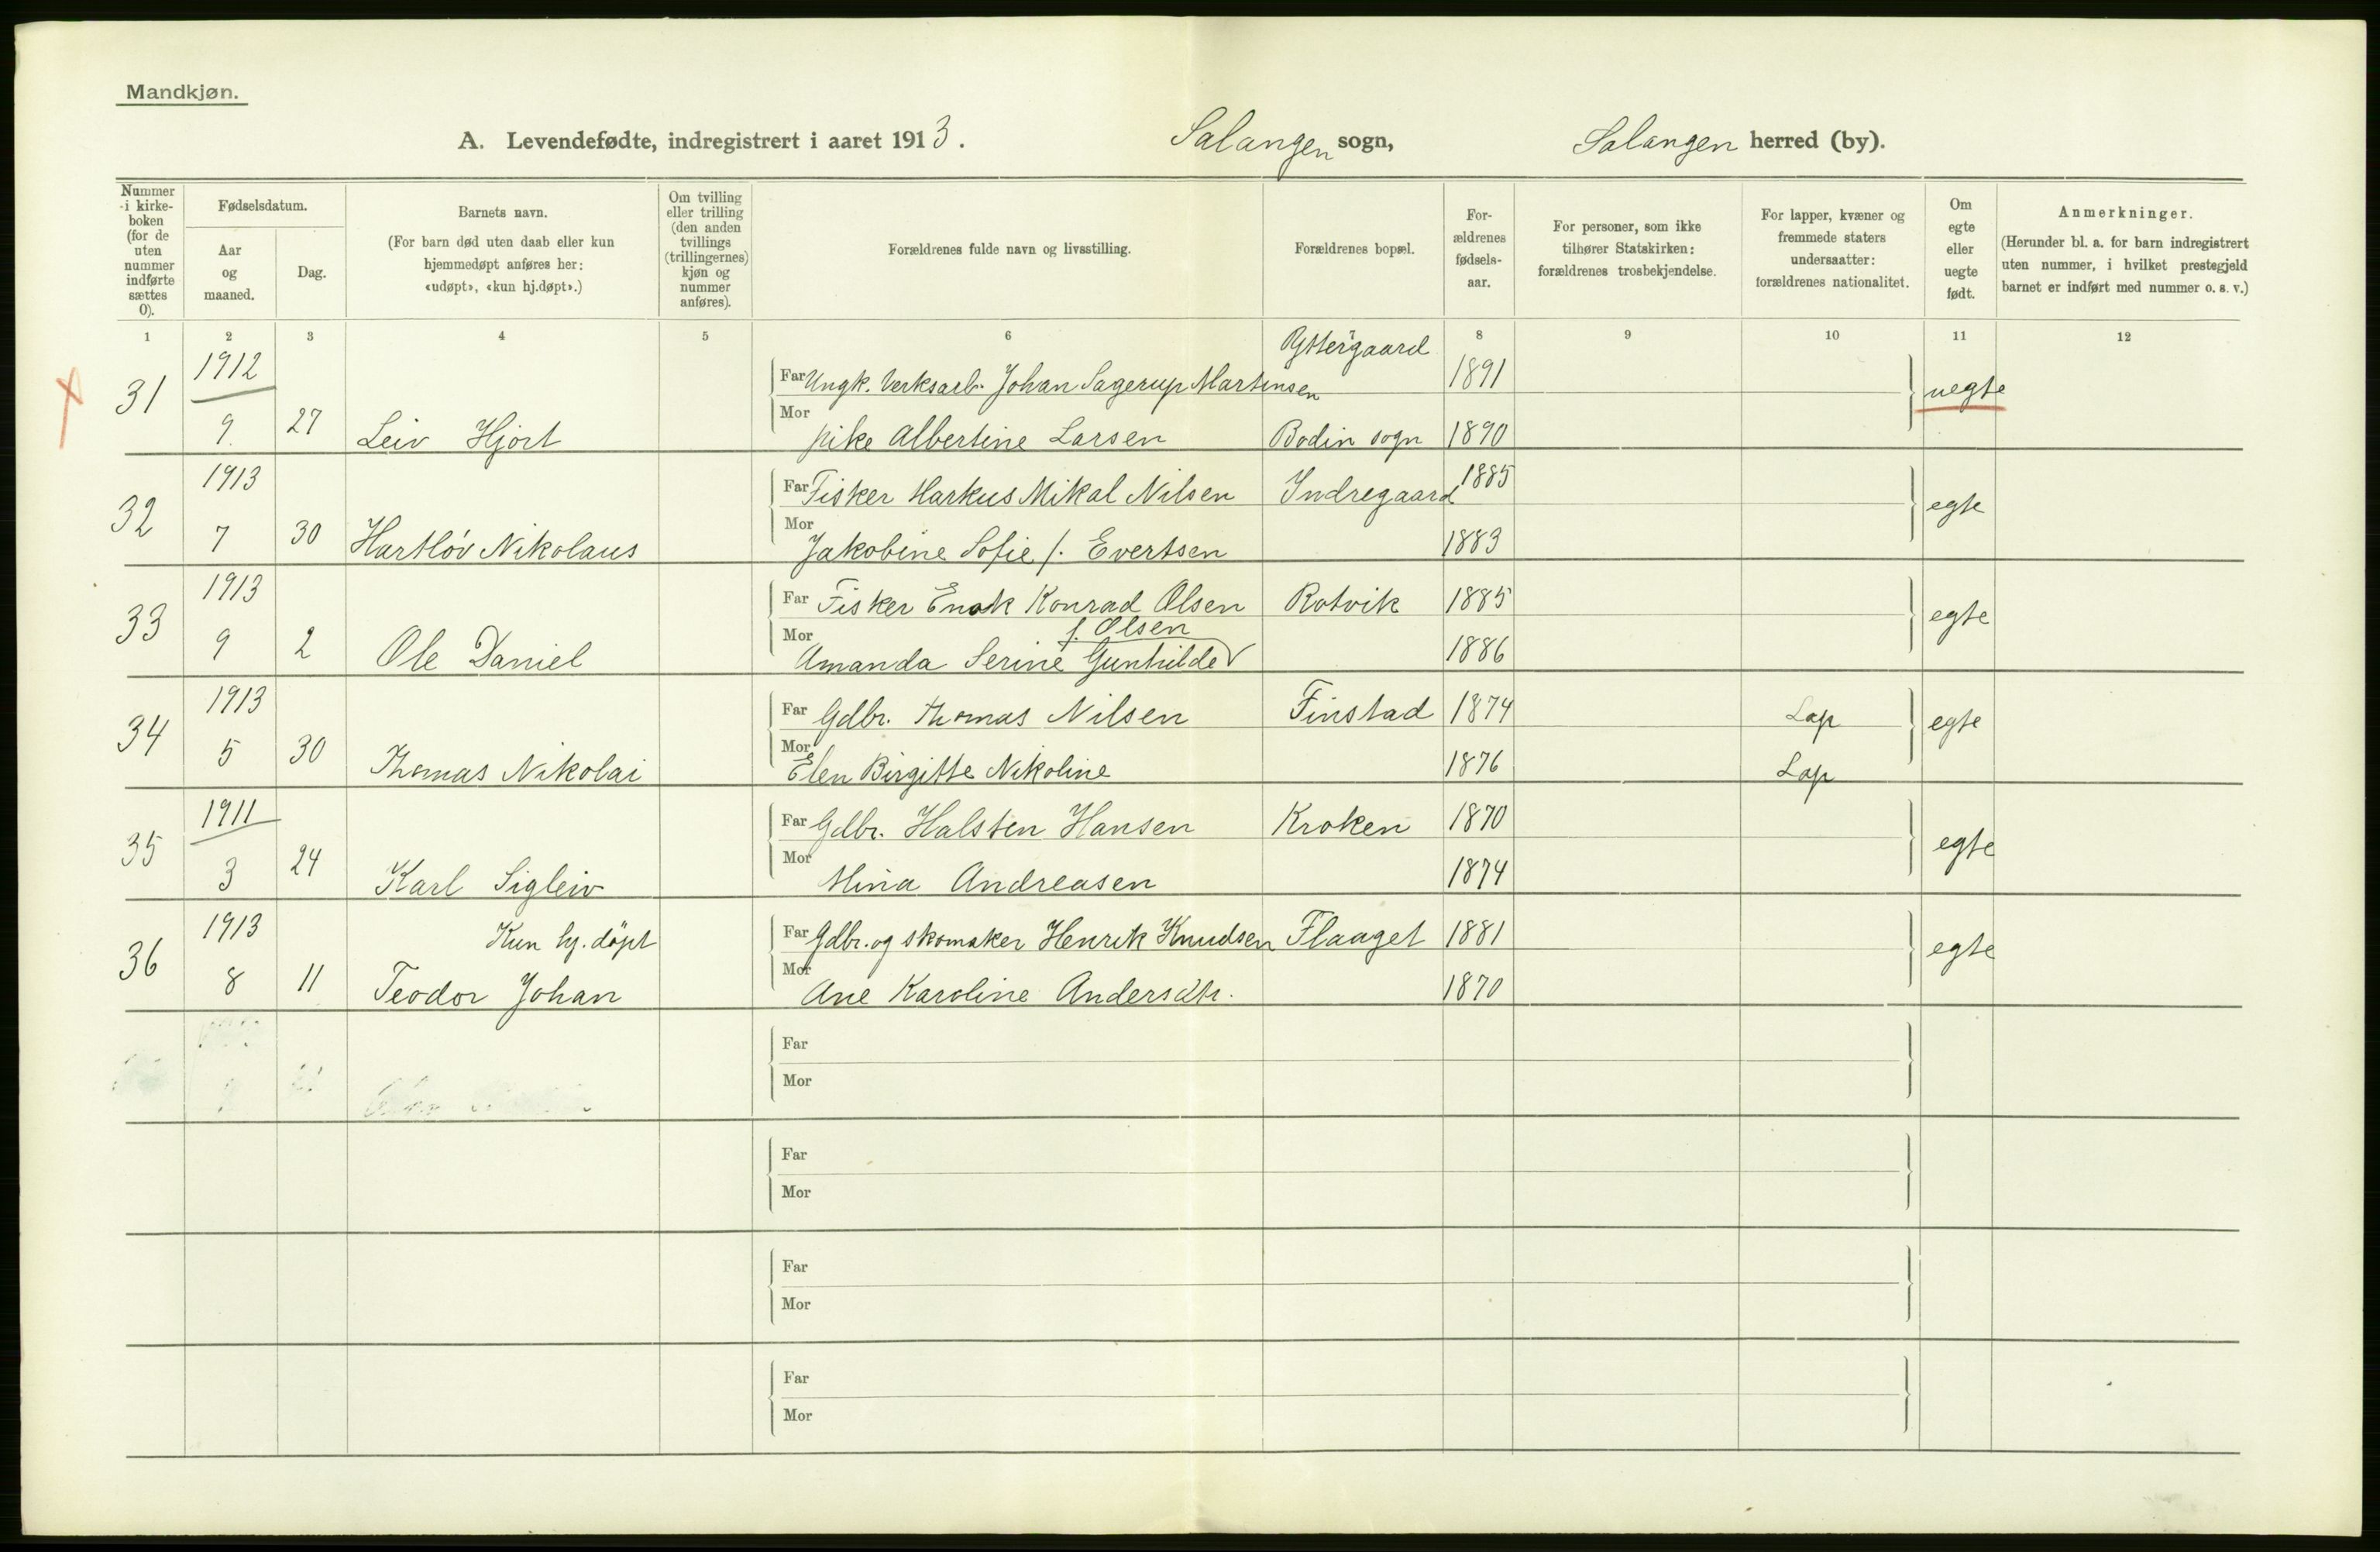 Mandkjøn.
A. Levendefødte, indregistrert i aaret 1913. Salangen sogn, Salangen herred (by).
Nummer i kirke-boken (for de uten nummer indførte sættes 0).
Fødselsdatum.
Aar og maaned.
Dag.
Barnets navn.
(For barn død uten daab eller kun hjemmedøpt anføres her: «udøpt», «kun hj.døpt».)
Om tvilling eller trilling (den anden tvillings (trillingernes) kjøn og nummer anføres).
Forældrenes fulde navn og livsstilling.
Forældrenes bopæl.
For-ældrenes fødsels-aar.
For personer, som ikke tilhører Statskirken: forældrenes trosbekjendelse.
For lapper, kvæner og fremmede staters undersaatter: forældrenes nationalitet.
Om egte eller uegte født.
Anmerkninger.
(Herunder bl. a. for barn indregistrert uten nummer, i hvilket prestegjeld barnet er indført med nummer o. s. v.)
1 2 3 4 5 6 7 8 9 10 11 12
31 1912 Far Ungk. Verksarb. Johan Sagerup Martinsen Yttergaard 1891 uegte
9. 27 Leiv Hjört Mor pike Albertine Larsen Bodin sogn 1890
32 1913 Far Fisker Markus Mikal Nilsen Indregaard 1885 egte
7 30 Hartløv Nikolaus Mor Jakobine Sofie f. Evertsen 1883
33 1913 Far Fisker Enok Konrad Olsen Rotvik 1885 egte
f. Olsen
9 2 Ole Daniel Mor Amanda Serine Gunhilde 1886
34 1913 Far Gdbr. Thomas Nilsen Finstad 1874 Lap egte
5 30 Thomas Nikolai Mor Elen Birgitte Nikoline 1876 Lap
35 1911 Far Gdbr. Halsten Hansen Kroken 1870 egte
3 24 Karl Sigleiv Mor Mina Andreasen 1874
36 1913 Kun hj. döpt Far Gdbr. og skomaker Henrik Knudsen Flaaget 1881 egte
8 11 Teodor Johan Mor Ane Karoline Andersdtr. 1870
Far
Mor
Far
Mor
Far
Mor
Far
Mor